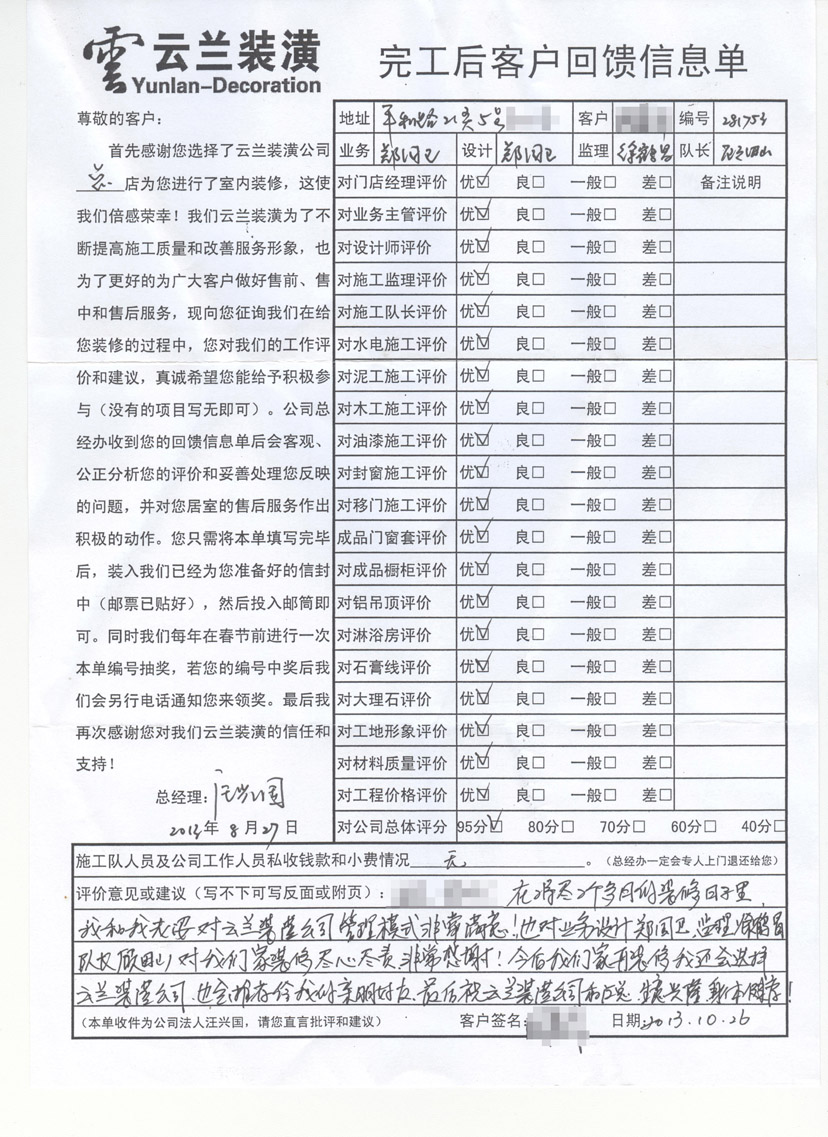 雲 云兰装潢
Yunlan-Decoration
完工后客户回馈信息单
尊敬的客户：
首先感谢您选择了云兰装潢公司
总 店为您进行了室内装修，这使
我们倍感荣幸！我们云兰装潢为了不
断提高施工质量和改善服务形象，也
为了更好的为广大客户做好售前、售
中和售后服务，现向您征询我们在给
您装修的过程中，您对我们的工作评
价和建议，真诚希望您能给予积极参
与（没有的项目写无即可）。公司总
经办收到您的回馈信息单后会客观、
公正分析您的评价和妥善处理您反映
的问题，并对您居室的售后服务作出
积极的动作。您只需将本单填写完毕
后，装入我们已经为您准备好的信封
中（邮票已贴好），然后投入邮筒即
可。同时我们每年在春节前进行一次
本单编号抽奖，若您的编号中奖后我
们会另行电话通知您来领奖。最后我
再次感谢您对我们云兰装潢的信任和
支持！
总经理：汪兴国
2013年 8 月 27 日
地址 5号 客户 编号 281753
业务 郑国卫 设计 郑国卫 监理 队长
对门店经理评价 优☑ 良□ 一般□ 差□ 备注说明
对业务主管评价 优☑ 良□ 一般□ 差□
对设计师评价 优☑ 良□ 一般□ 差□
对施工监理评价 优☑ 良□ 一般□ 差□
对施工队长评价 优☑ 良□ 一般□ 差□
对水电施工评价 优☑ 良□ 一般□ 差□
对泥工施工评价 优☑ 良□ 一般□ 差□
对木工施工评价 优☑ 良□ 一般□ 差□
对油漆施工评价 优☑ 良□ 一般□ 差□
对封窗施工评价 优☑ 良□ 一般□ 差□
对移门施工评价 优☑ 良□ 一般□ 差□
成品门窗套评价 优☑ 良□ 一般□ 差□
对成品橱柜评价 优☑ 良□ 一般□ 差□
对铝吊顶评价 优☑ 良□ 一般□ 差□
对淋浴房评价 优☑ 良□ 一般□ 差□
对石膏线评价 优☑ 良□ 一般□ 差□
对大理石评价 优☑ 良□ 一般□ 差□
对工地形象评价 优☑ 良□ 一般□ 差□
对材料质量评价 优☑ 良□ 一般□ 差□
对工程价格评价 优☑ 良□ 一般□ 差□
对公司总体评分 95分☑ 80分□ 70分□ 60分□ 40分□
施工队人员及公司工作人员私收钱款和小费情况 无 。（总经办一定会专人上门退还给您）
评价意见或建议（写不下可写反面或附页）： 在将尽2个多月的装修日子里，
我和我老婆对云兰装潢公司管理模式非常满意！也对业务设计郑国卫、监理
队长 对我们家装修尽心尽责，非常感谢！今后我们家再装修我还会选择
云兰装潢公司，也会推荐给我的亲朋好友，最后祝云兰装潢公司和汪总 身体健康！
（本单收件为公司法人汪兴国，请您直言批评和建议） 客户签名： 日期：2013.10.26